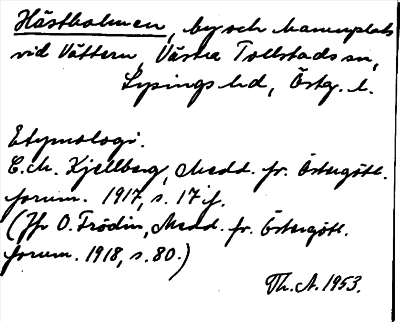 Hästholmen, by och hamnplats
vid Vättern, Västra Tollstads sn,
Lysings hd, Östg. l.
Etymologi.
C.M. Kjellberg, Medd. fr. Östergötl.
fornm. 1917, s. 17 f.
(Jfr O. Frödin, Medd. fr. Östergötl.
fornm. 1918, s. 80.)
Th. A. 1953.